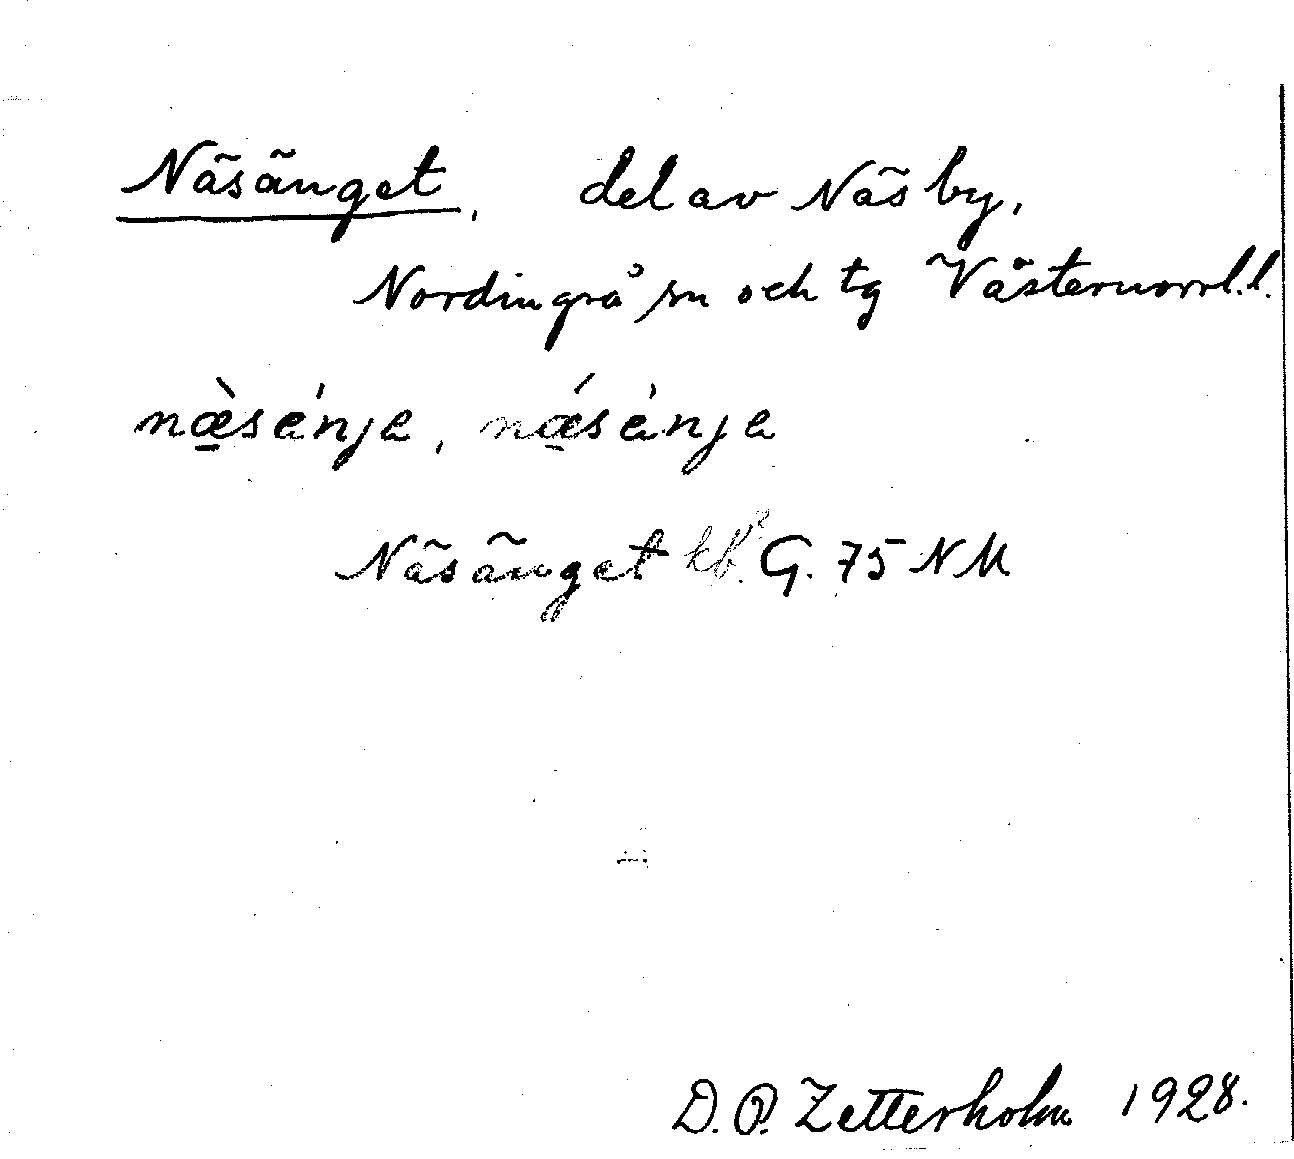 Näsänget, del av Näsby,
Nordingrå sn och tg Västernorrl. l.
næ̱̀sánje, nǽ̱sánje
Näsänget kb. G. 75 NM
D. O. Zetterholm 1928.